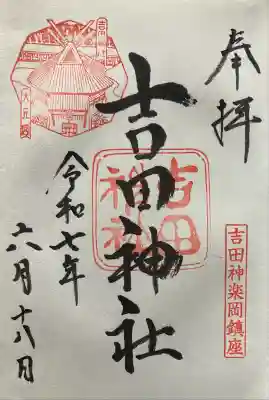 奉拝
吉田神楽岡鎮座
吉田神社
吉田神社
令和七年
六月十八日